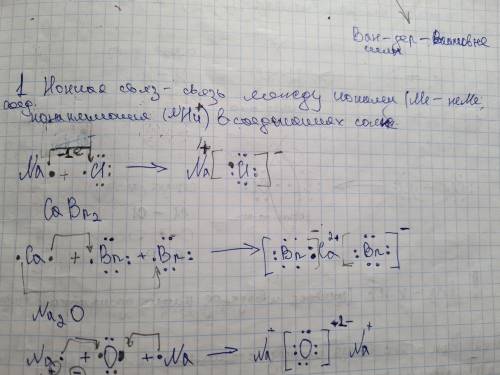 Ван-дер-Ваальсовые
силы
1 Ионная связь - связь между ионами (Ме - неМе,
соед.
иона аммония (NH4)+ в соединениях солях
Na· + ·Cl: → Na+ [:Cl:]-
-1e
CaBr2
·Ca· + ·Br: + ·Br: → [:Br:]- Ca2+ [:Br:]-
Na2O
Na· + ·O· + ·Na → Na+ [:O:]+2- Na+